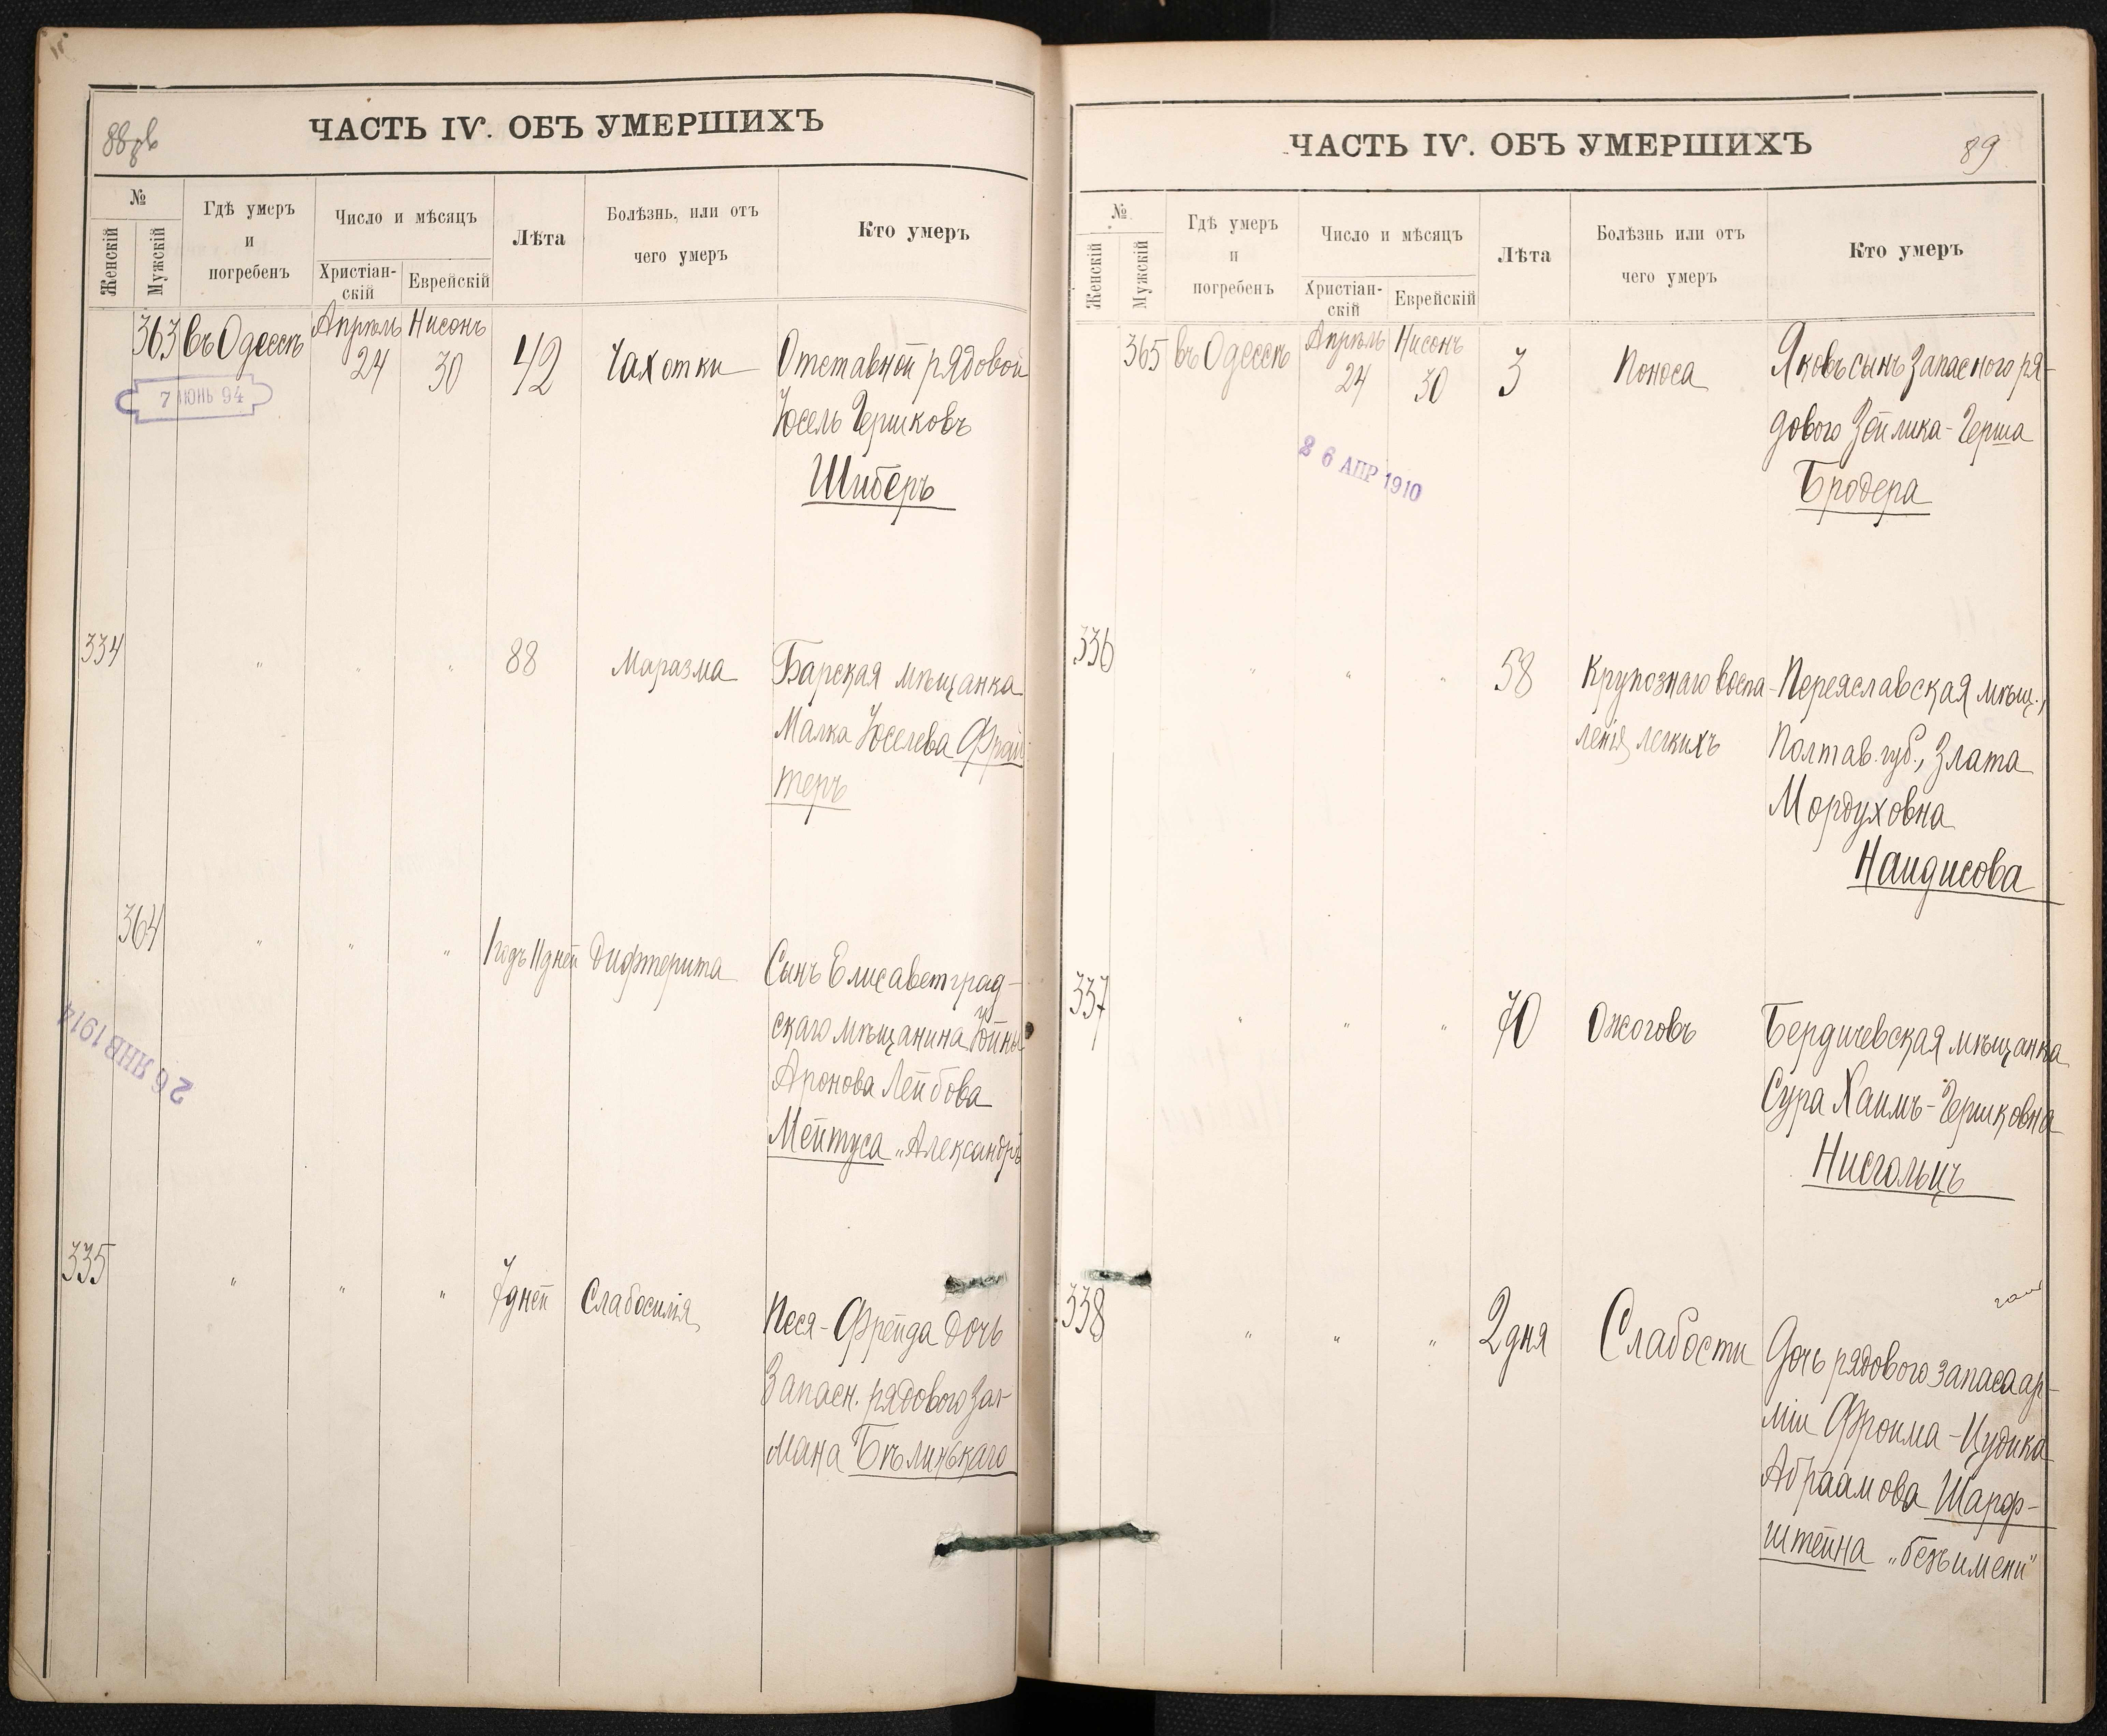 88 об
ЧАСТЬ IV. ОБЪ УМЕРШИХЪ
№
Женскій
Мужскій
Гдѣ умеръ
и
погребенъ
Число и мѣсяцъ
Христіан-
скій
Еврейскій
Лѣта
Болѣзнь, или отъ
чего умеръ
Кто умеръ
363 въ Одессѣ Апрѣль 24 Нисонъ 30 42 Чахотки Отставной рядовой
Іосель Гершковъ
Шиберъ
7 ІЮНЬ 94
334 " " " 88 Маразма Барская мѣщанка
Малка Іоселева Фрай-
теръ
364 " " " 1 годъ 11 дней Дифтерита Сынъ Елисаветград-
скаго мѣщанина Юйны
Аронова Лейбова
Мейтуса „Александръ
26 ЯНВ 1914
335 " " " 7 дней Слабосилія Песя-Фрейда дочь
Запасн. рядового Зал-
мана Бѣлинькаго
ЧАСТЬ IV. ОБЪ УМЕРШИХЪ
89
№
Женскій
Мужскій
Гдѣ умеръ
и
погребенъ
Число и мѣсяцъ
Христіан-
скій
Еврейскій
Лѣта
Болѣзнь или отъ
чего умеръ
Кто умеръ
365 въ Одессѣ Апрѣль 24 Нисонъ 30 3 Поноса Яковъ сынъ Запасного ря-
дового Зейлика-Герша
Бродера
26 АПР 1910
336 " " " 58 Крупознаго воспа- Переяславская мѣщ.,
ленія легкихъ Полтав. губ., Злата
Мордуховна
Наидисова
337 " " " 70 Ожоговъ Бердичевская мѣщанка
Сура Хаимъ-Гершковна
Нисгольцъ
338 " " " 2 дня Слабости Дочь рядового запаса ар-
міи Фроима-Цудика
Абраамова Шарф-
штейна „безъ имени"